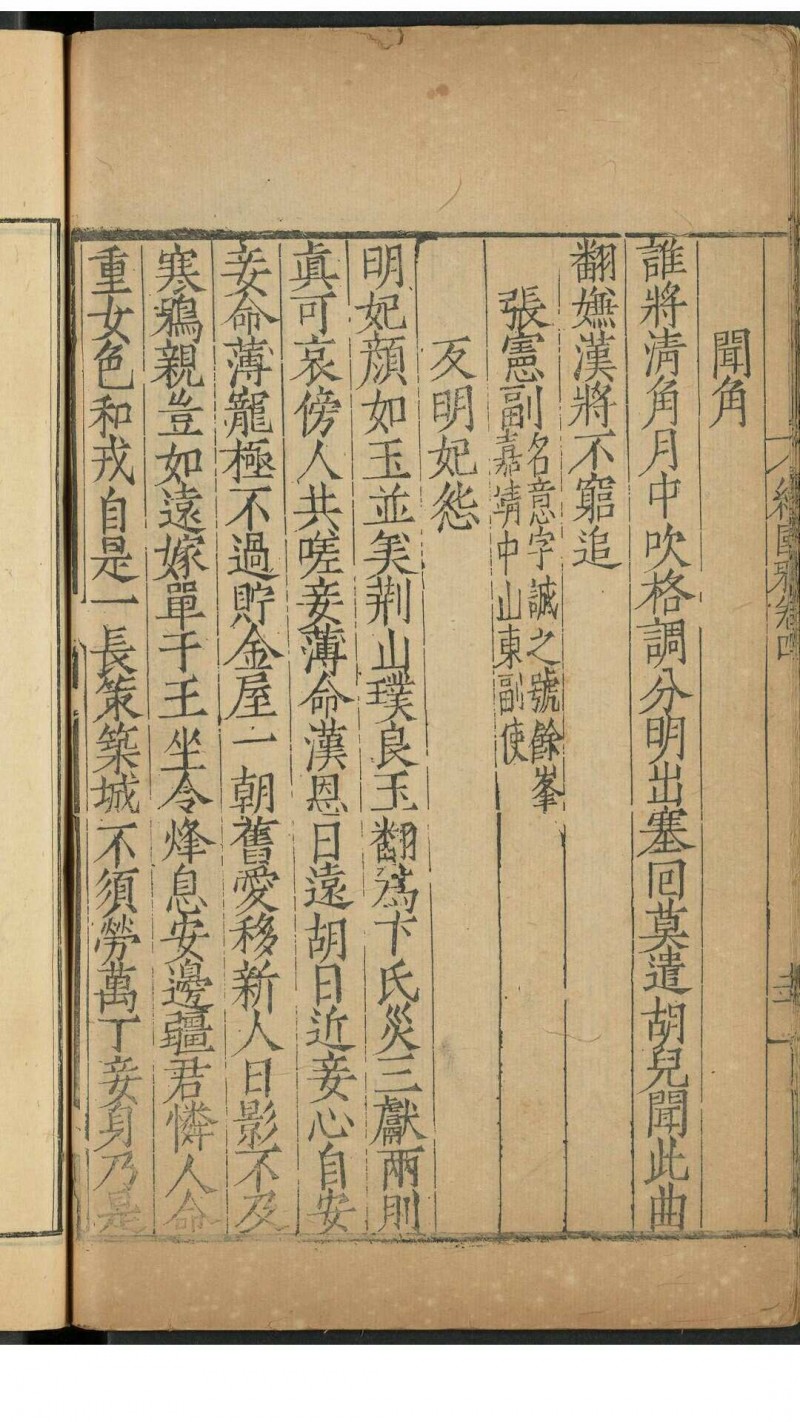 續國雅卷四
聞角
誰將淸角月中吹格調分明出塞回莫遣胡兒聞此曲
翻嫌漢將不窮追
張憲副名意字誠之號餘峯
嘉靖中山東副使
反明妃怨
明妃顔如玉並美荆山璞良玉翻爲卞氏災三獻兩刖
眞可哀傍人共嗟妾薄命漢恩日遠胡日近妾心自安
妾命薄寵極不過貯金屋一朝舊愛移新人日影不及
寒鴉親豈如遠嫁單于王坐令烽息安邊疆君憐人命
重女色和戎自是一長策築城不須勞萬丁妾身乃是